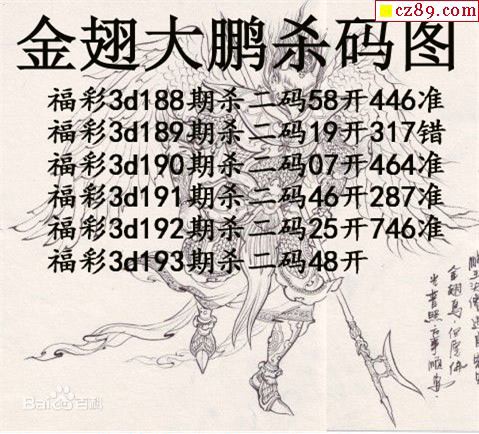 cz89.com
金翅大鹏杀码图
福彩3d188期杀二码58开446准
福彩3d189期杀二码19开317错
福彩3d190期杀二码07开464准
福彩3d191期杀二码46开287准
福彩3d192期杀二码25开746准
福彩3d193期杀二码48开
Baidu百科